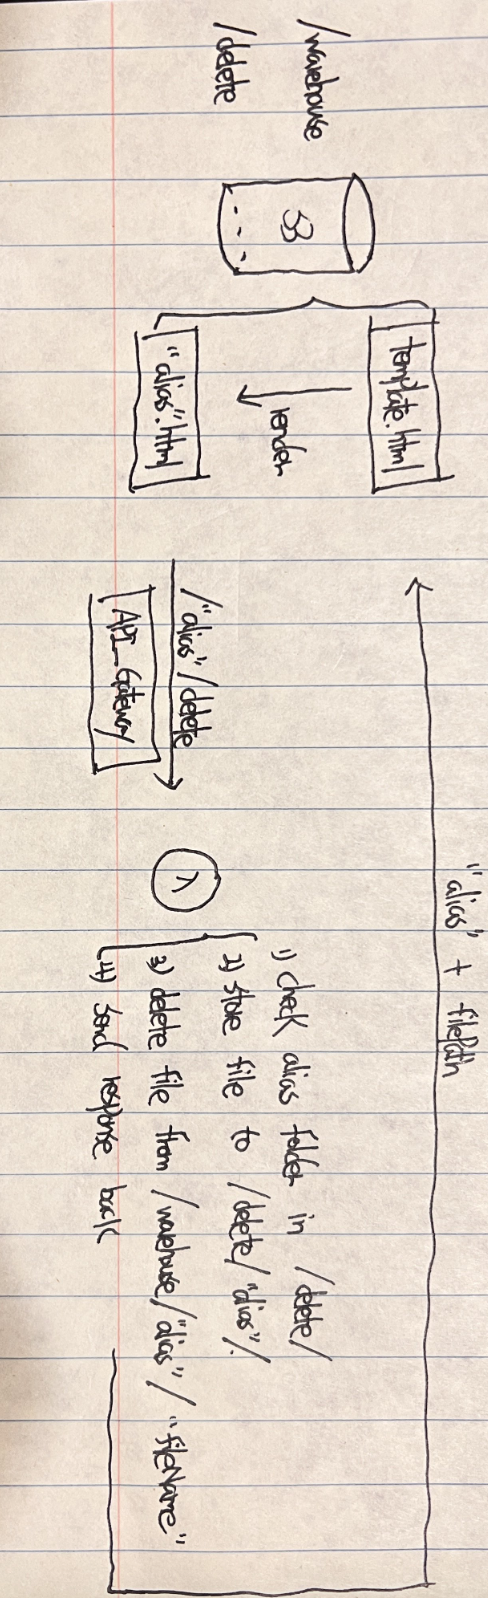 /warehouse
/delete
S3
template.html
render
"alias".html
/"alias"/delete
API_Gateway
λ
"alias" + filePath
1) check alias folder in /delete/
2) store file to /delete/"alias"/.
3) delete file from /warehouse/"alias"/"fileName"
4) send response back